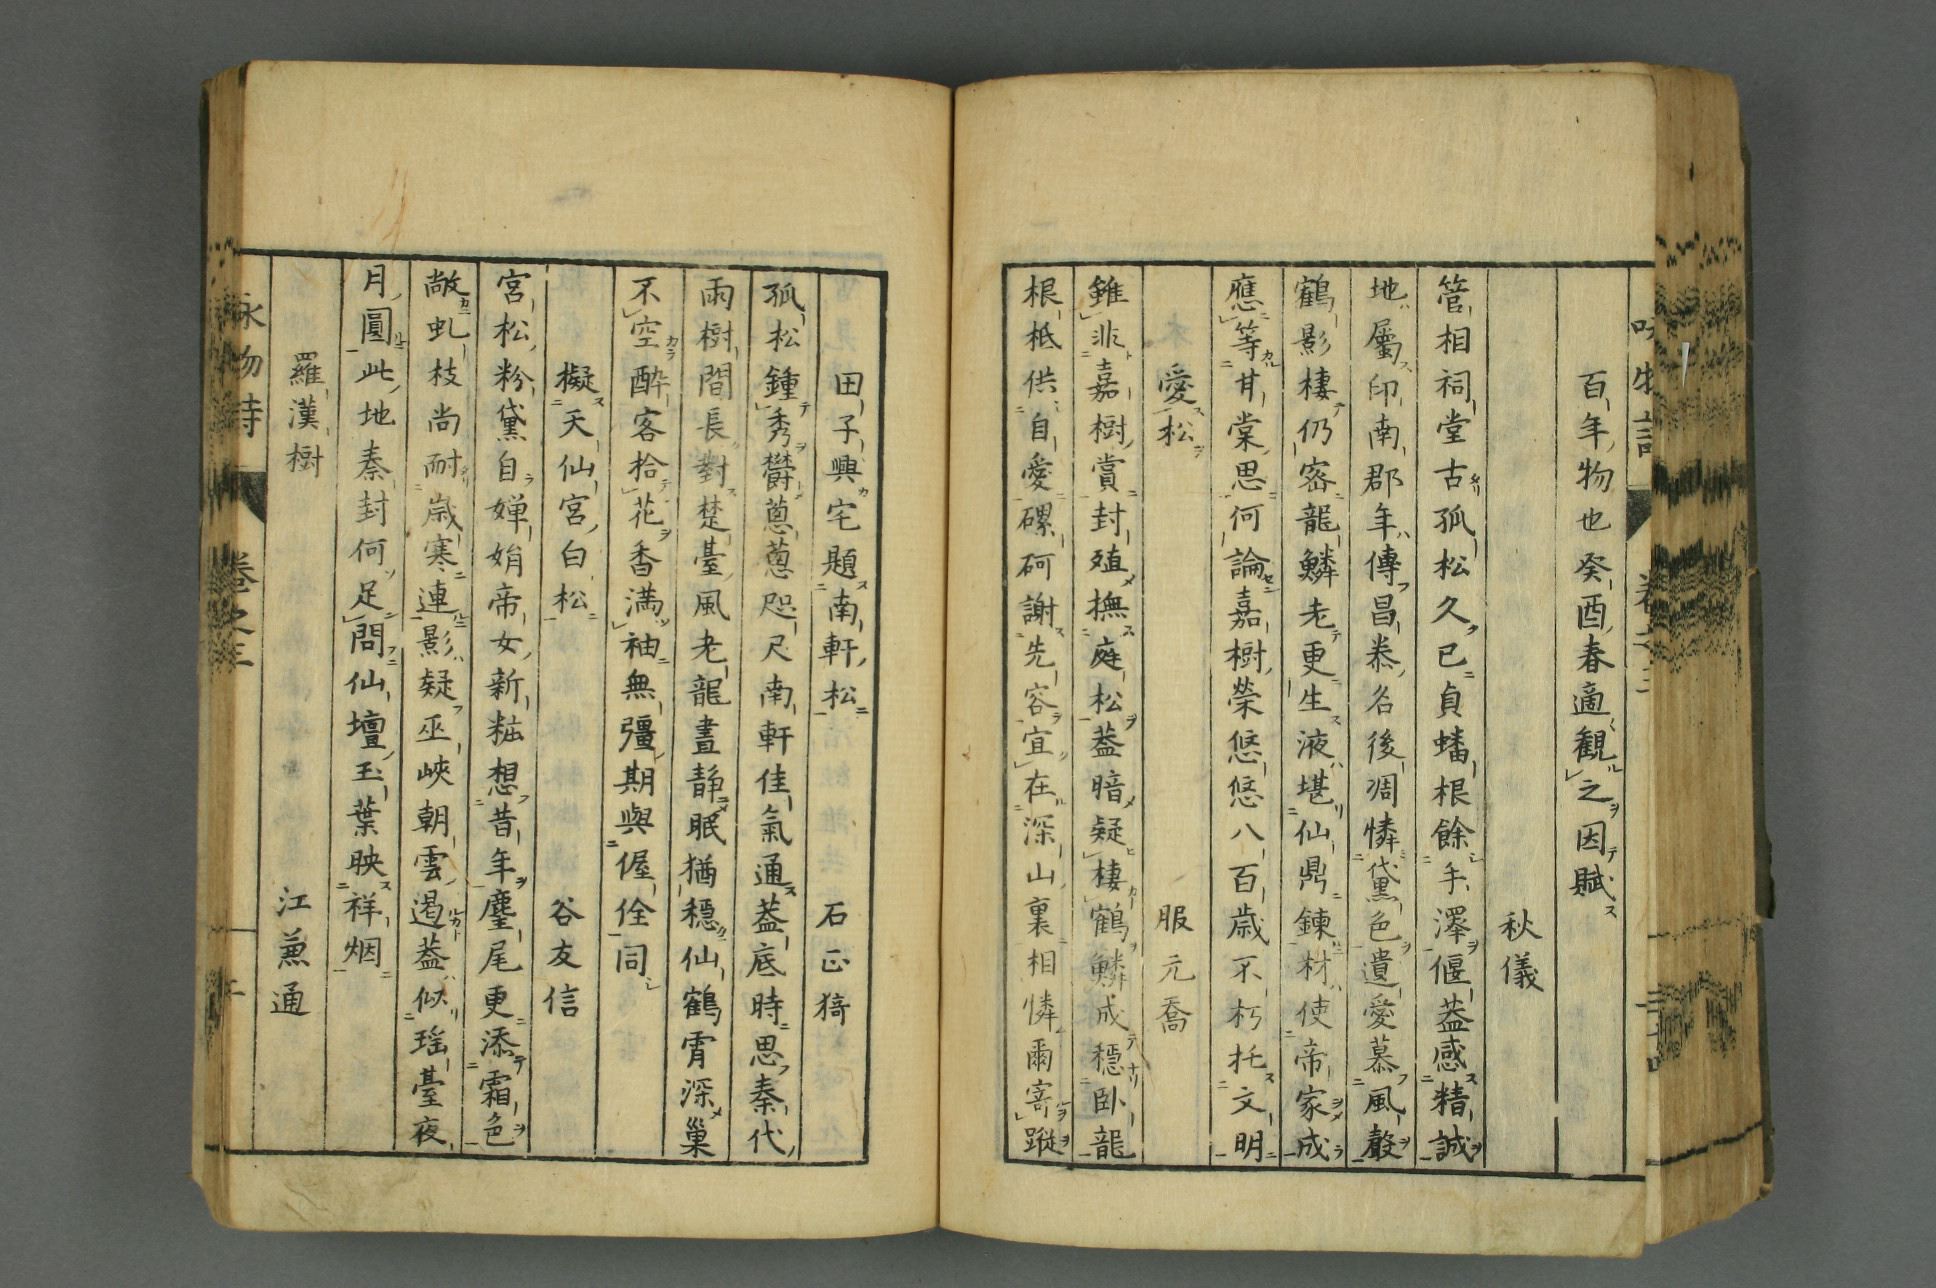 百年物也癸酉春適観之因賦
秋儀
管相祠堂古孤松久已貞蟠根餘手澤偃葢感精誠
地屬印南郡年傳昌泰名後凋憐黛色遺愛慕風聲
鶴影棲仍密龍鱗老更生液堪仙鼎錬材使帝家成
應等甘棠思何論嘉樹榮悠悠八百歳不朽托文明
愛松 服元喬
雖非嘉樹賞封殖撫庭松葢暗疑棲鶴鱗成穏臥龍
根柢供自愛磥砢謝先容宜在深山裏相憐爾寄蹤
田子興宅題南軒松 石正猗
孤松鍾秀欝葱葱咫尺南軒佳氣通葢底時思秦代
雨樹間長對楚臺風老龍晝静眠猶穏仙鶴霄深巢
不空酔客拾花香満袖無彊期與偓佺同
擬天仙宮白松 谷友信
宮松粉黛自嬋娟帝女新粧想昔年麈尾更添霜色
敞虬枝尚耐歳寒連影疑巫峽朝雲遏葢似瑶臺夜
月圓此地秦封何足問仙壇玉葉映祥烟
羅漢樹 江兼通
詠物詩 卷之三